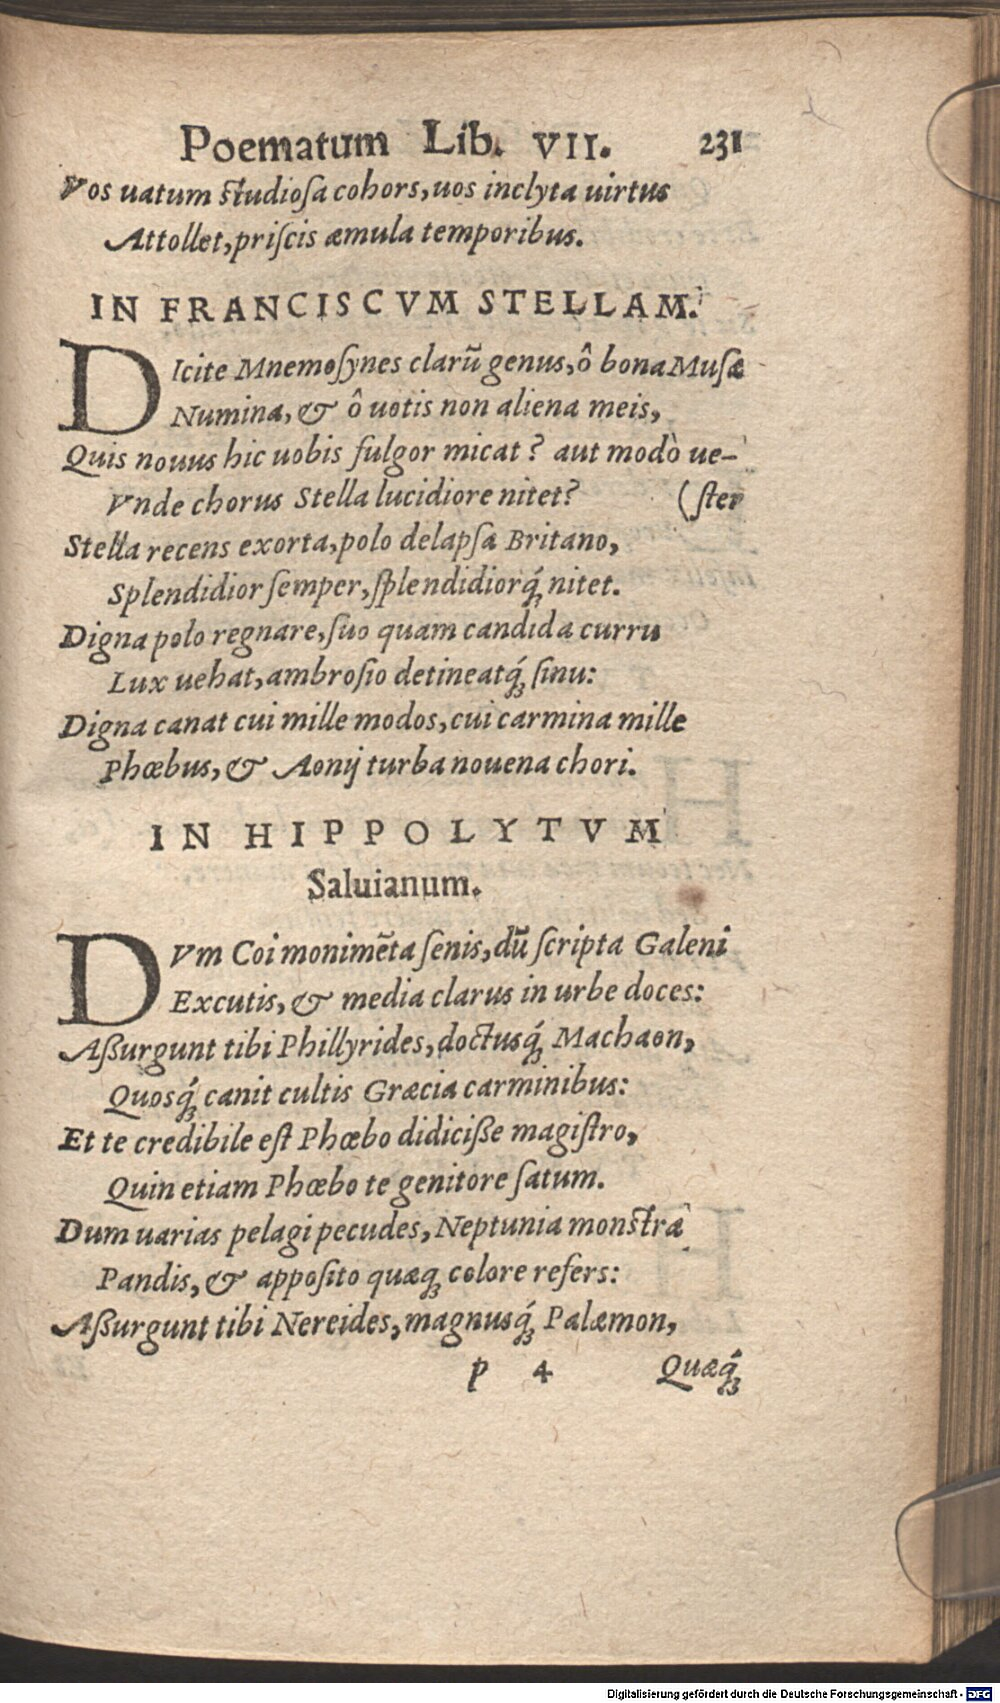 Poematum Lib. VII. 231
Vos uatum studioſa cohors, uos inclyta uirtus
Attollet, priſcis æmula temporibus.
IN FRANCISCVM STELLAM.
DIcite Mnemoſynes clarũ genus, ô bona Muſæ
Numina, & ô uotis non aliena meis,
Quis nouus hic uobis fulgor micat? aut modò ue-
Vnde chorus Stella lucidiore nitet? (ſter
Stella recens exorta, polo delapſa Britano,
Splendidior ſemper, ſplendidiorq́ꝫ nitet.
Digna polo regnare, ſuo quam candida curru
Lux uehat, ambroſio detineatq́ꝫ ſinu:
Digna canat cui mille modos, cui carmina mille
Phœbus, & Aonij turba nouena chori.
IN HIPPOLYTVM
Saluianum.
DVm Coi monimẽta ſenis, dũ ſcripta Galeni
Excutis, & media clarus in urbe doces:
Aßurgunt tibi Phillyrides, doctusq́ꝫ Machaon,
Quosq́ꝫ canit cultis Græcia carminibus:
Et te credibile eſt Phœbo didiciße magiſtro,
Quin etiam Phœbo te genitore ſatum.
Dum uarias pelagi pecudes, Neptunia monstra
Pandis, & appoſito quæqꝫ colore refers:
Aßurgunt tibi Nereides, magnusq́ꝫ Palæmon,
p 4 Quæq́ꝫ
Digitalisierung gefördert durch die Deutsche Forschungsgemeinschaft - DFG